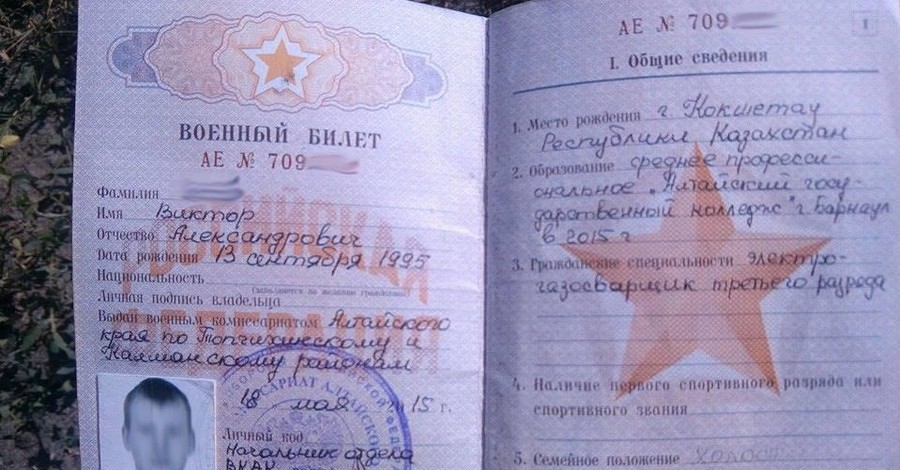 ВОЕННЫЙ БИЛЕТ
АЕ № 709
Фамилия
Имя Виктор
Отчество Александрович
Дата рождения 13 сентября 1995
Национальность
(заполняется по желанию гражданина)
Личная подпись владельца
Выдан военным комиссариатом Алтайского
края по Топчихинскому и
Калманскому районам
18 мая 2015 г.
Личный код
Начальник отдела
АЕ № 709
1
I. Общие сведения
1. Место рождения г. Кокшетау
Республики Казахстан
2. Образование среднее професси-
ональное "Алтайский госу-
дарственный колледж" г. Барнаул
в 2015 г
3. Гражданские специальности электро-
газосварщик третьего разряда
4. Наличие первого спортивного разряда или
спортивного звания
5. Семейное положение холост